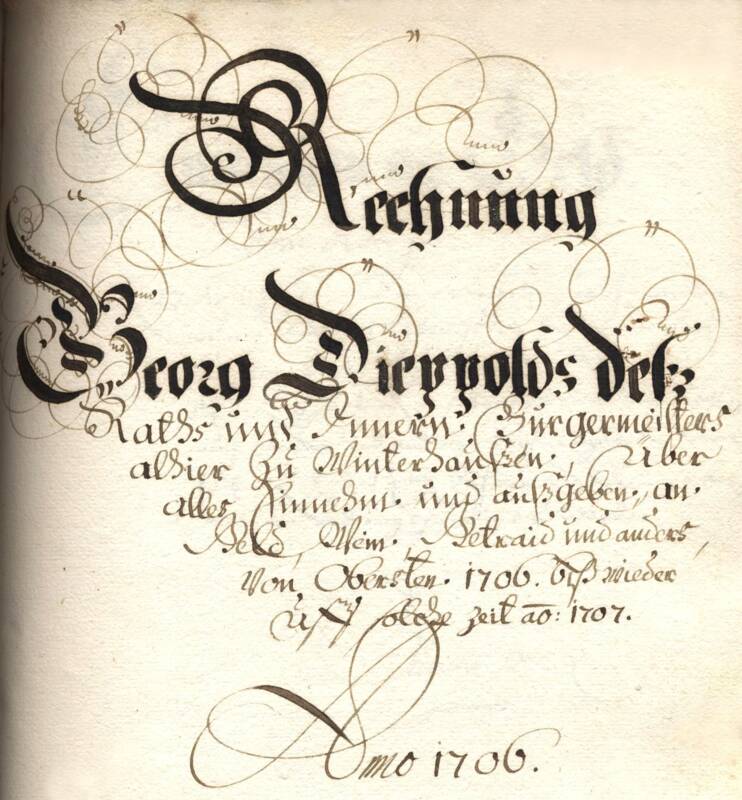 Rechnung
Georg Dieppolds deß
Raths und Innern Burgermeisters
alhier zu Winterhaußen, Über
alles Einnehm. und außgeben, an
Geld, Wein, Getraid und anders,
Von Obersten. 1706. biß wieder
uff solche zeit ao: 1707.
Anno 1706.